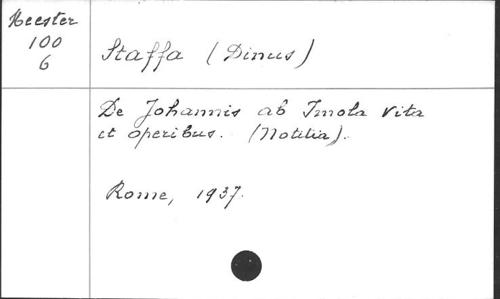 Heester
100
6
Staffa (Dinus)
De Johannis ab Imola vita
et operibus. (Notitia).
Rome, 1937.